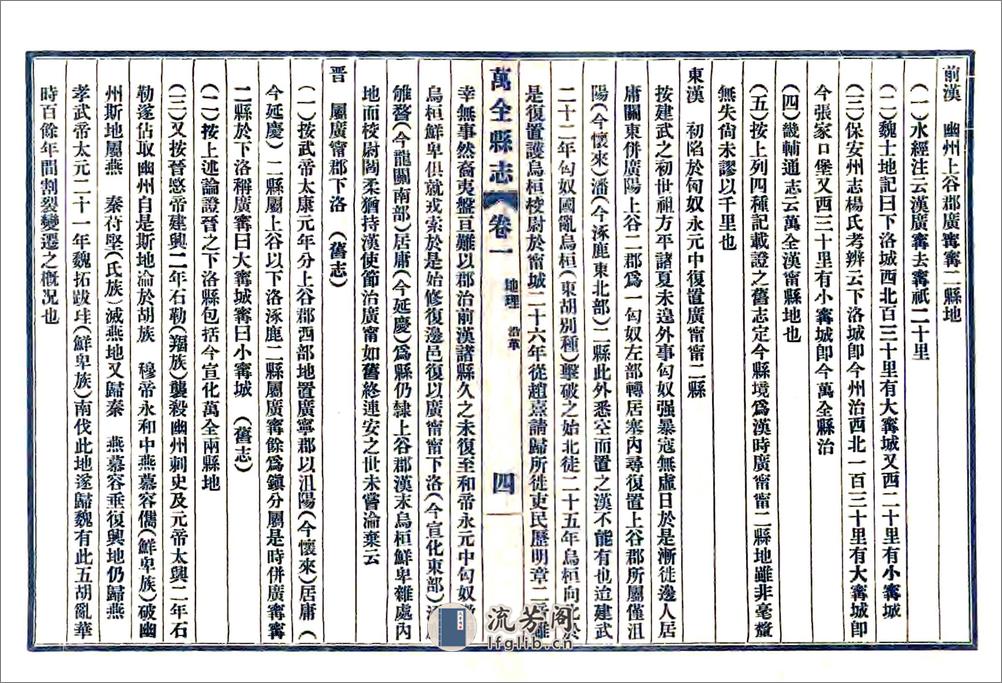 前漢　幽州上谷郡廣寗寗二縣地
（一）水經注云漢廣寗去寗祇二十里
（二）魏土地記曰下洛城西北百三十里有大寗城又西二十里有小寗城
（三）保安州志楊氏考辨云下洛城卽今州治西北一百三十里有大寗城卽
今張家口堡又西三十里有小寗城卽今萬全縣治
（四）畿輔通志云萬全漢甯縣地也
（五）按上列四種記載證之舊志定今縣境爲漢時廣甯甯二縣地雖非毫釐
無失尙未謬以千里也
東漢　初陷於匈奴永元中復置廣甯甯二縣
按建武之初世祖方平諸夏未遑外事匈奴强暴寇無虛日於是漸徙邊人居
庸關東併廣陽上谷二郡爲一匈奴左部轉居塞內尋復置上谷郡所屬僅沮
陽（今懷來）潘（今涿鹿東北部）二縣此外悉空而置之漢不能有也迨建武
二十二年匈奴國亂烏桓（東胡別種）擊破之始北徒二十五年烏桓向化於
是復置護烏桓校尉於甯城二十六年從趙憙請歸所徙吏民歷明章二
幸無事然裔夷盤亘難以郡治前漢諸縣久之未復至和帝永元中匈奴
烏桓鮮卑俱就戎索於是始修復邊邑復以廣甯甯下洛（今宣化東部）
雊瞀（今龍關南部）居庸（今延慶）爲縣仍隸上谷郡漢末烏桓鮮卑雜處內
地而校尉閻柔猶持漢使節治廣甯如舊終連安之世未嘗淪棄云
晋　屬廣甯郡下洛（舊志）
（一）按武帝太康元年分上谷郡西部地置廣寧郡以沮陽（今懷來）居庸（
今延慶）二縣屬上谷以下洛涿鹿二縣屬廣寗餘爲鎭分屬是時併廣寗寗
二縣於下洛稱廣寗曰大寗城寗曰小寗城（舊志）
（二）按上述論證晉之下洛縣包括今宣化萬全兩縣地
（三）又按晉愍帝建興二年石勒（羯族）襲殺幽州刺史及元帝太興二年石
勒遂佔取幽州自是斯地淪於胡族　穆帝永和中燕慕容儁（鮮卑族）破幽
州斯地屬燕　秦苻堅（氐族）滅燕地又歸秦　燕慕容垂復興地仍歸燕
孝武帝太元二十一年魏拓跋珪（鮮卑族）南伐此地遂歸魏有此五胡亂華
時百餘年間割裂變遷之槪況也
萬全縣志　卷一　地理　沿革　四
流芳阁
lfglib.cn